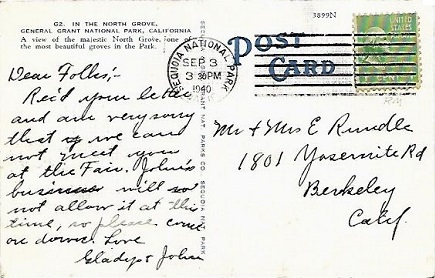 G2. IN THE NORTH GROVE,
GENERAL GRANT NATIONAL PARK, CALIFORNIA
A view of the majestic North Grove, one of
the most beautiful groves in the Park.
3899N
POST
CARD
SEQUOIA NATIONAL PARK
SEP 3
3 PM
1940
UNITED
STATES
Dear Folks:-
Rec'd your letter
and am very sorry
that we can
not meet you
at the Fair. John's
business will not
not allow it at this
time, so please come
on down. Love
Gladys & John
Mr & Mrs E Rundle
1801 Yosemite Rd
Berkeley
Calif.
PARKS CO. SEQUOIA NAT. PARK